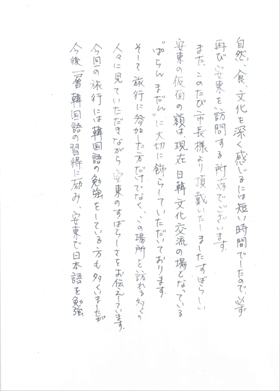 自然、食、文化を深く感じるには短い時間でしたので必ず
再び安東を訪問する所存でございます。
また、このたび市長様より頂戴いたしましたすばらしい
安東の仮面の額は現在 日韓文化交流の場となっている
ぱらんまだんに大切に飾らしていただいております。
そして旅行に参加した方だけでなく、この場所を訪れる多くの
人々に見ていただきながら安東のすばらしさをお伝えしています。
今回の旅行には韓国語の勉強をしている方も多くいましたが
今後一層韓国語の習得に励み、安東で日本語を勉強